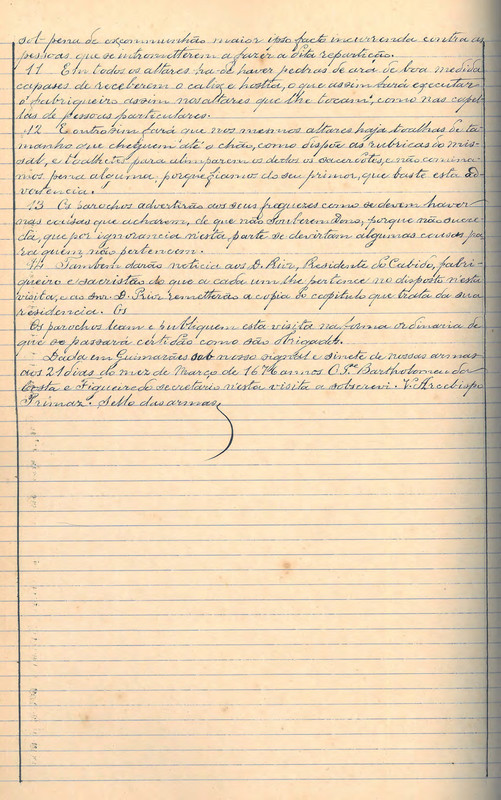 sob pena de excommunhão maior ipso facto incurrenda contra as
pessoas que se intrometterem a fazer a dita repartição.
11 Em todos os altares ha de haver pedras de ará de boa medida
capases de receberem o calix e hostia, o que assim fará executar
o fabriqueiro assim nos altares que lhe tocam, como nas capel-
las de pessoas particulares.
12 E outrosim fará que nos mesmos altares haja toalhas de ta-
manho que cheguem até o chão, como dispõe as rubricas do mis-
sal, e toalhetes para alimparem os dedos os sacerdotes, e não comina-
mos pena alguma, porque fiamos do seu primor, que baste esta ad-
vertencia.
13 Os parochos advertirão aos seus freguezes como se devem haver
nas cousas que acharem, de que não souberem dono, porque não suce-
da, que por ignorancia n'esta parte se devirtam algumas cousas pa-
ra quem não pertencem.
14 Tambem darão noticia aos D. Prior, Presidente do Cabido, fabri-
queiro e sacristão do que a cada um lhe pertence no disposto nesta
visita, e ao snr. D. Prior remetterão a copia do capitulo que trata da sua
residencia. Os
Os parochos leam e publiquem esta visita na forma ordinaria de
que se passará certidão como são obrigados.
Dada em Guimarães sob nosso signal e sinete de nossas armas
aos 21 dias do mez de Março de 1676 annos O Pe Bartholomeu da
Costa e Figueiredo secretario n'esta visita a sobscrevi. V. Arcebispo
Primaz. Sello das armas